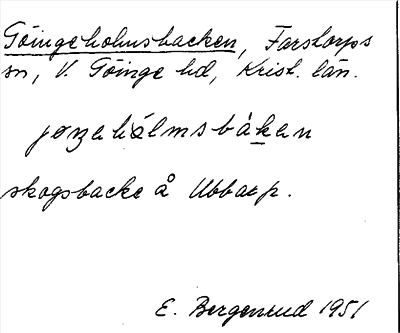 Göingeholmsbacken, Farstorps
sn, V. Göinge hd, Krist. län.
jøŋahálmsbákan
skogsbacke å Ubbarp.
E. Bergensud 1951